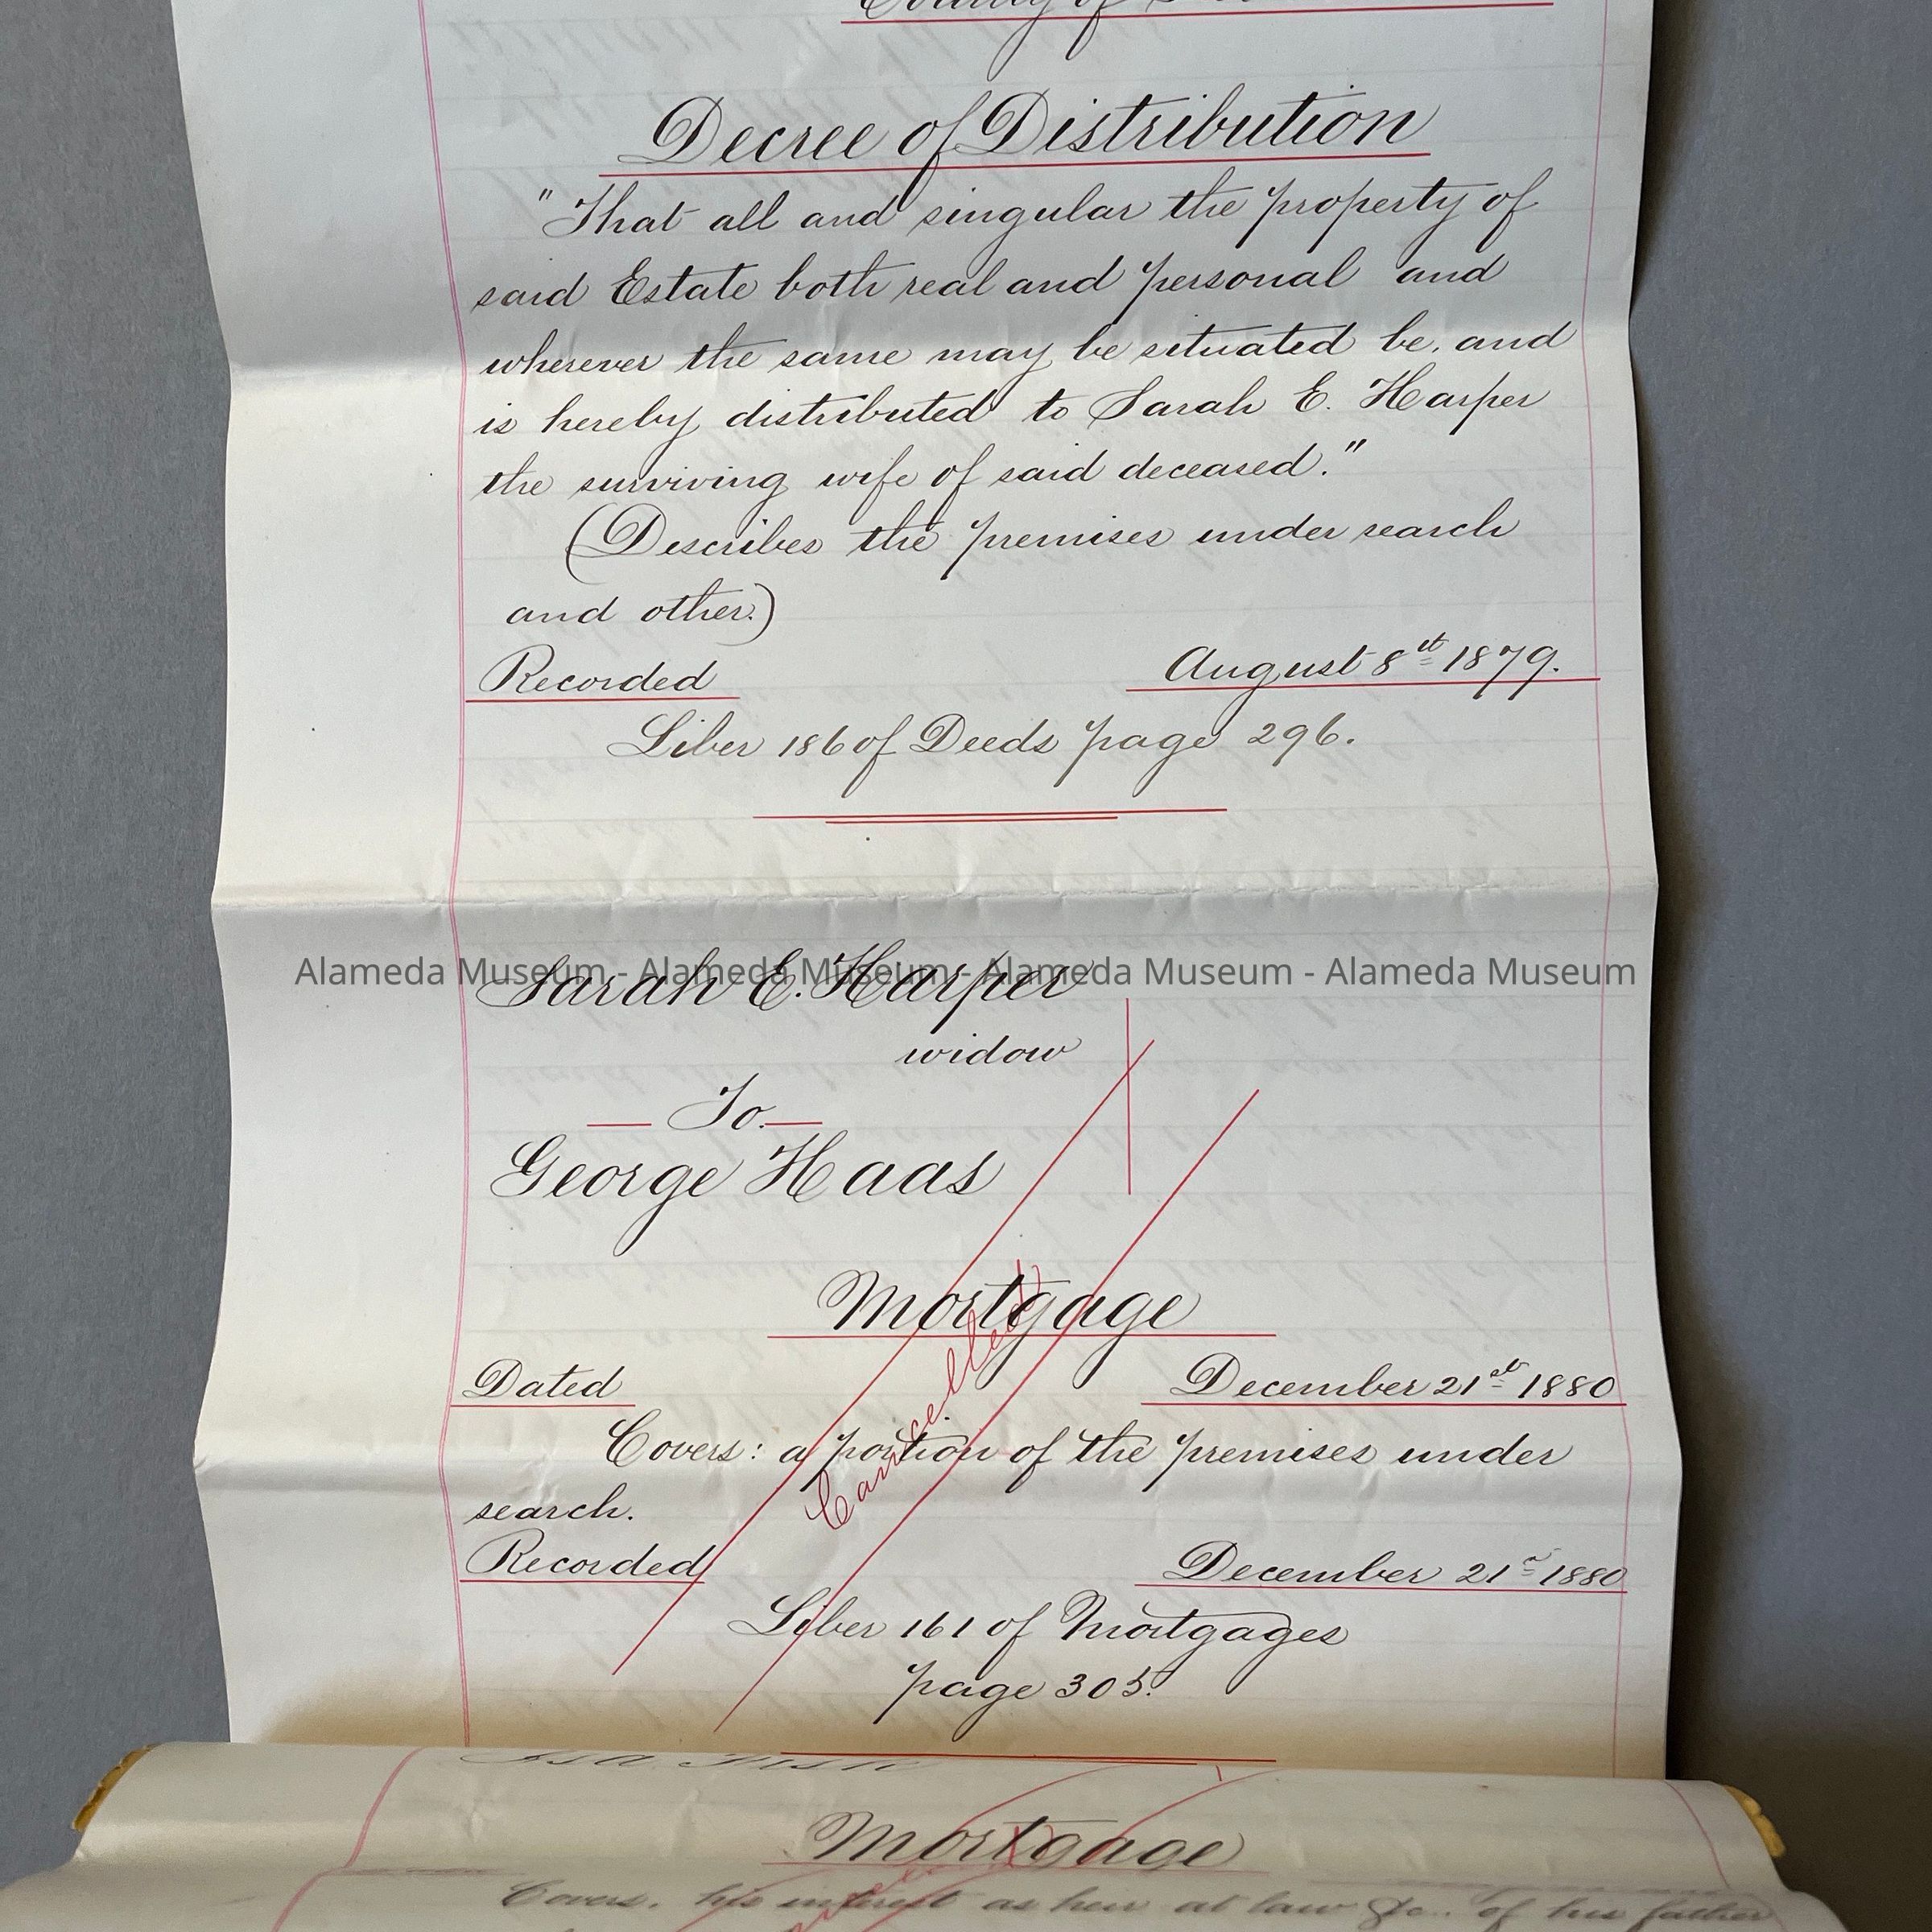 County of
Decree of Distribution
"That all and singular the property of
said Estate both real and personal and
wherever the same may be situated be, and
is hereby distributed to Sarah E. Harper
the surviving wife of said deceased."
(Describes the premises under search
and other.)
Recorded August 8th 1879.
Liber 186 of Deeds page 296.
Alameda Museum - Alameda Museum - Alameda Museum - Alameda Museum
Sarah E. Harper
widow
To.
George Haas
Mortgage
Cancelled
Dated December 21st 1880
Covers: a portion of the premises under
search.
Recorded December 21st 1880
Liber 161 of Mortgages
page 305.
Mortgage
Covers. his interest as heir at law &c. of his father